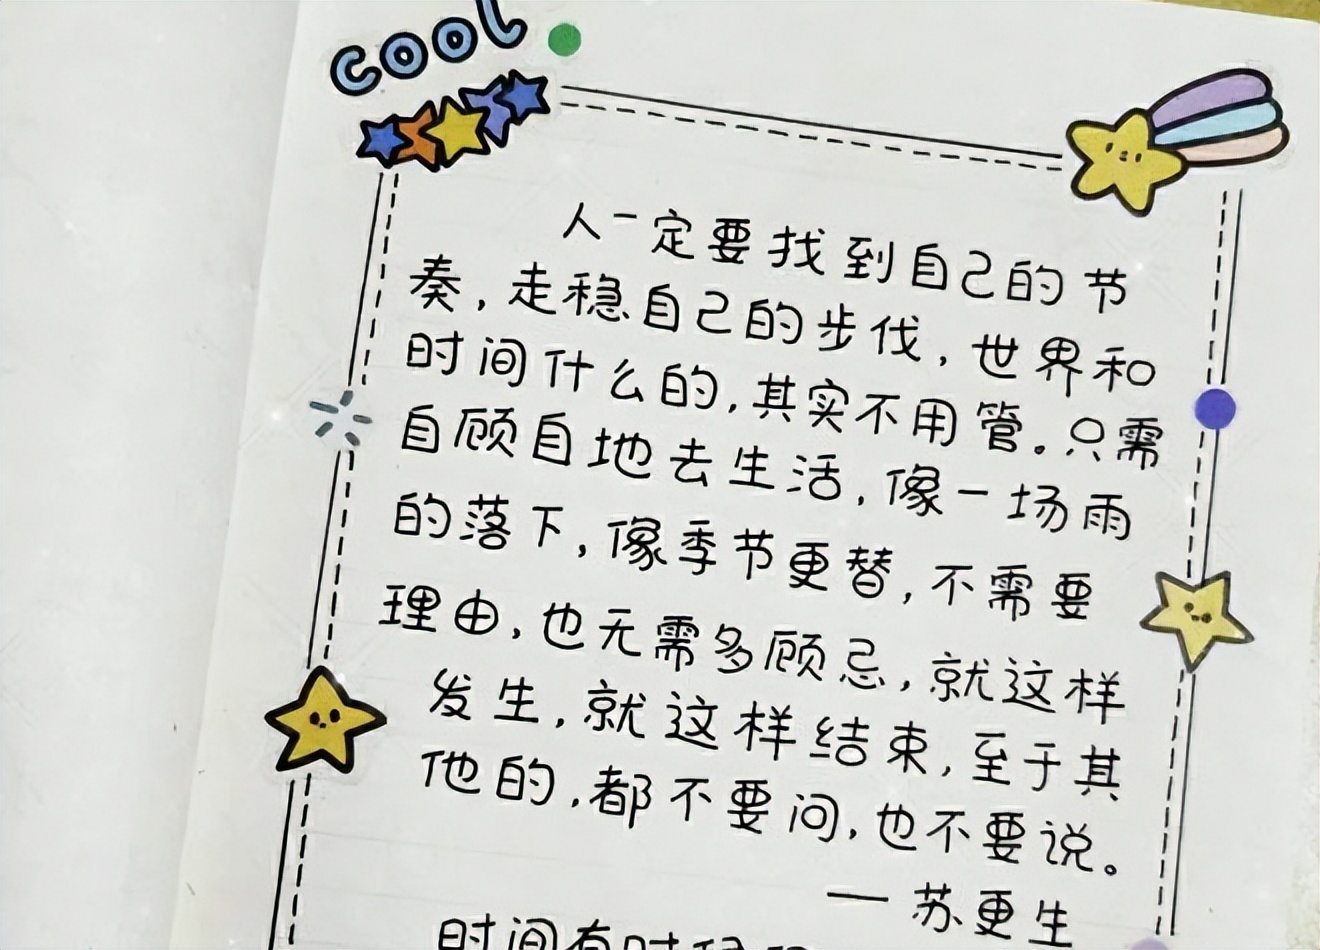 COOL
人一定要找到自己的节
奏，走稳自己的步伐，世界和
时间什么的，其实不用管。只需
自顾自地去生活，像一场雨
的落下，像季节更替，不需要
理由，也无需多顾忌，就这样
发生，就这样结束，至于其
他的，都不要问，也不要说。
— 苏更生
时间有时候